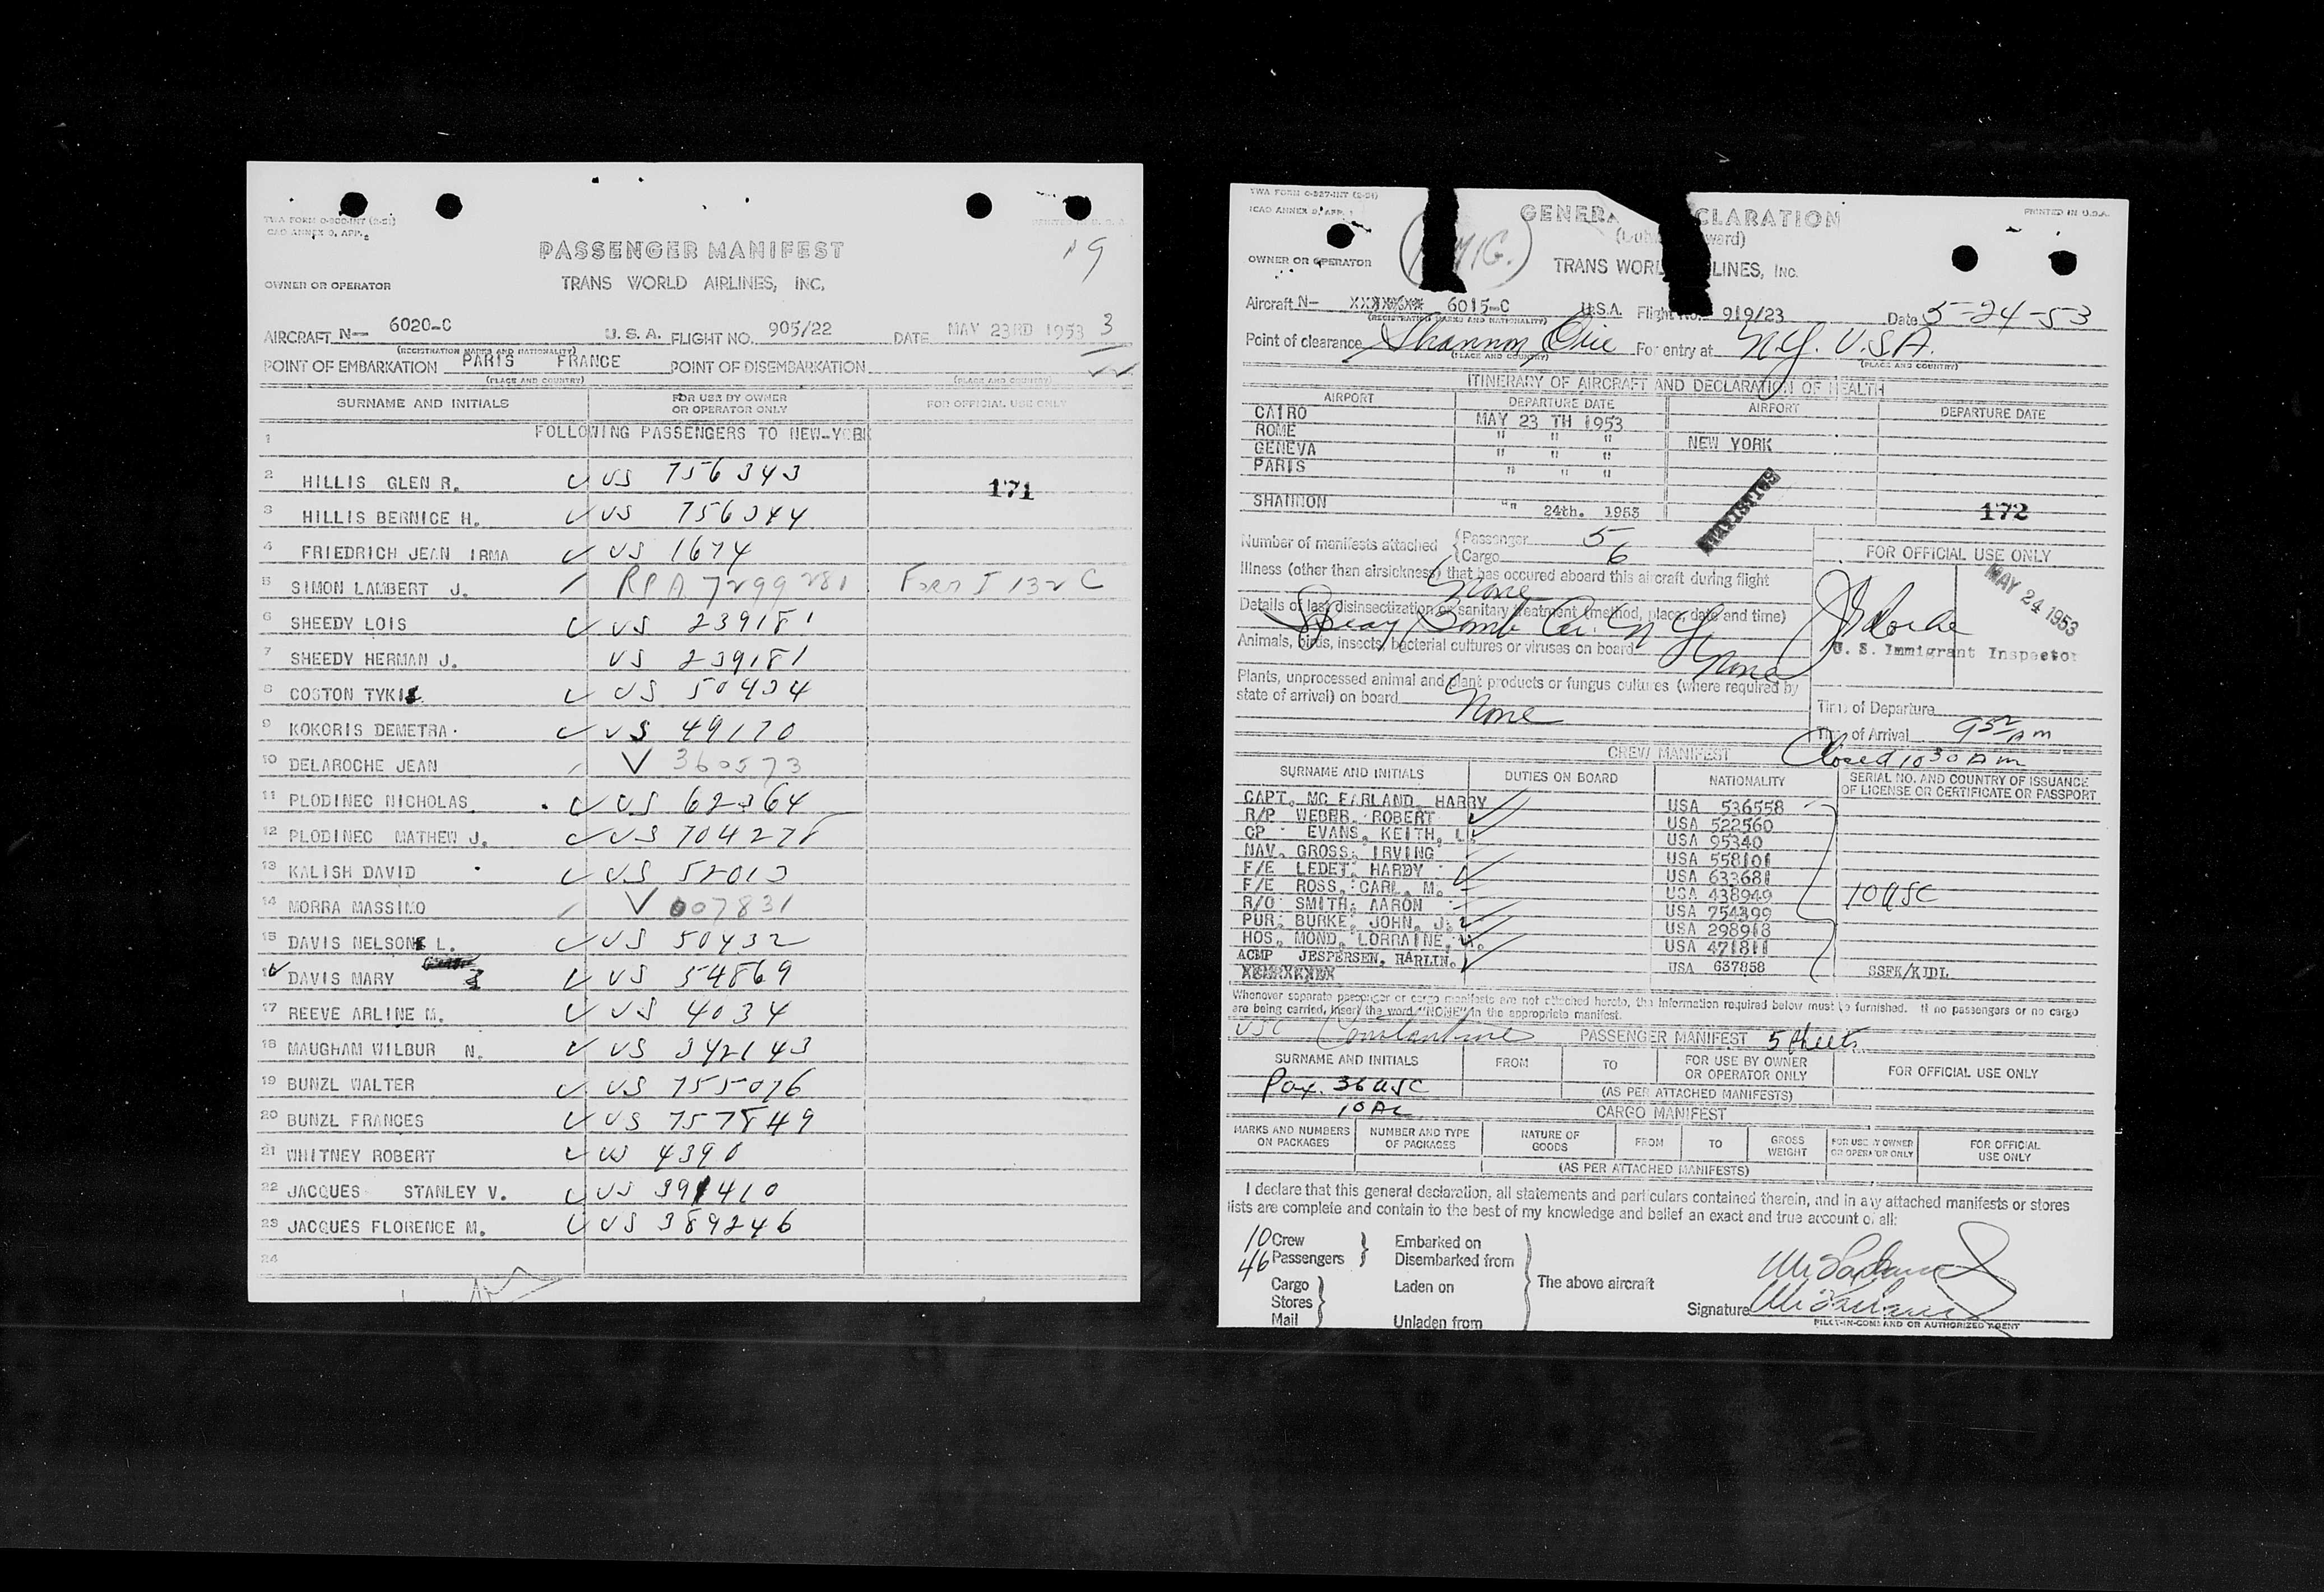 TWA FORM O-900-INT (2-51)
CAO ANNEX 9, APP.
PASSENGER MANIFEST
OWNER OR OPERATOR
TRANS WORLD AIRLINES, INC.
AIRCRAFT N— 6020-C U.S.A. FLIGHT NO. 905/22 DATE MAY 23RD 1953 3
(REGISTRATION MARKS AND NATIONALITY)
POINT OF EMBARKATION PARIS FRANCE POINT OF DISEMBARKATION
(PLACE AND COUNTRY) (PLACE AND COUNTRY)
SURNAME AND INITIALS FOR USE BY OWNER OR OPERATOR ONLY FOR OFFICIAL USE ONLY
1 FOLLOWING PASSENGERS TO NEW-YORK
2 HILLIS GLEN R. ✓ US 756343 171
3 HILLIS BERNICE H. ✓ US 756344
4 FRIEDRICH JEAN IRMA ✓ US 1674
5 SIMON LAMBERT J. / RPA 7299281 Form I 132 C
6 SHEEDY LOIS ✓ US 239181
7 SHEEDY HERMAN J. US 239181
8 COSTON TYKI ✓ US 50434
9 KOKORIS DEMETRA ✓ US 49170
10 DELAROCHE JEAN / V 360573
11 PLODINEC NICHOLAS ✓ US 62364
12 PLODINEC MATHEW J. ✓ US 704278
13 KALISH DAVID ✓ US 52013
14 MORRA MASSIMO / V 007831
15 DAVIS NELSON L. ✓ US 50432
✓ DAVIS MARY ✓ US 54869
17 REEVE ARLINE M. ✓ US 4034
18 MAUGHAM WILBUR N. ✓ US 342143
19 BUNZL WALTER ✓ US 755076
20 BUNZL FRANCES ✓ US 757849
21 WHITNEY ROBERT ✓ US 4390
22 JACQUES STANLEY V. ✓ US 391410
23 JACQUES FLORENCE M. ✓ US 389246
24
TWA FORM O-927-INT (2-51)
ICAO ANNEX 9, APP. 1
PRINTED IN U.S.A.
GENERA CLARATION
ward)
OWNER OR OPERATOR
TRANS WORL LINES, INC.
Aircraft N— 6015-C U.S.A. Flight No. 919/23 Date 5-24-53
(REGISTRATION MARKS AND NATIONALITY)
Point of clearance Shannon, Eire For entry at N.Y. U.S.A.
(PLACE AND COUNTRY) (PLACE AND COUNTRY)
ITINERARY OF AIRCRAFT AND DECLARATION OF HEALTH
AIRPORT DEPARTURE DATE AIRPORT DEPARTURE DATE
CAIRO MAY 23 TH 1953
ROME " " " NEW YORK
GENEVA " " "
PARIS " " "
SHANNON "" 24th. 1953
172
Number of manifests attached {Passenger 5
{Cargo 6
FOR OFFICIAL USE ONLY
Illness (other than airsickness) that has occured aboard this aircraft during flight
None
MAY 24 1953
Details of last disinsectization or sanitary treatment (method, place, date and time)
Spray Bomb
U. S. Immigrant Inspector
Animals, birds, insects, bacterial cultures or viruses on board None
Plants, unprocessed animal and plant products or fungus cultures (where required by
state of arrival) on board None
Time of Departure
Time of Arrival 9 52 Am
CREW MANIFEST Closed 10 30 Am
SURNAME AND INITIALS DUTIES ON BOARD NATIONALITY SERIAL NO. AND COUNTRY OF ISSUANCE OF LICENSE OR CERTIFICATE OR PASSPORT
CAPT. MC FARLAND, HARRY USA 536558
R/P WEBER, ROBERT USA 522560
CP EVANS, KEITH, L. USA 95340
NAV. GROSS, IRVING USA 558101
F/E LEDET, HARDY USA 633681
F/E ROSS, CARL, M. USA 438949 10 USC
R/O SMITH, AARON USA 754399
PUR. BURKE, JOHN, J. USA 298913
HOS. MOND, LORRAINE, USA 471811
ACMP JESPERSEN, HARLIN. USA 637858 SSFK/KJDL
Whenever separate passenger or cargo manifests are not attached hereto, the information required below must be furnished. If no passengers or no cargo
are being carried, insert the word "NONE" in the appropriate manifest.
USC Constantine PASSENGER MANIFEST 5 sheets
SURNAME AND INITIALS FROM TO FOR USE BY OWNER OR OPERATOR ONLY FOR OFFICIAL USE ONLY
Pax. 36 USC (AS PER ATTACHED MANIFESTS)
10 AL CARGO MANIFEST
MARKS AND NUMBERS ON PACKAGES NUMBER AND TYPE OF PACKAGES NATURE OF GOODS FROM TO GROSS WEIGHT FOR USE BY OWNER OR OPERATOR ONLY FOR OFFICIAL USE ONLY
(AS PER ATTACHED MANIFESTS)
I declare that this general declaration, all statements and particulars contained therein, and in any attached manifests or stores
lists are complete and contain to the best of my knowledge and belief an exact and true account of all:
10 Crew Embarked on
46 Passengers Disembarked from
Cargo Laden on The above aircraft
Stores
Mail Unladen from
Signature
PILOT-IN-COMMAND OR AUTHORIZED AGENT